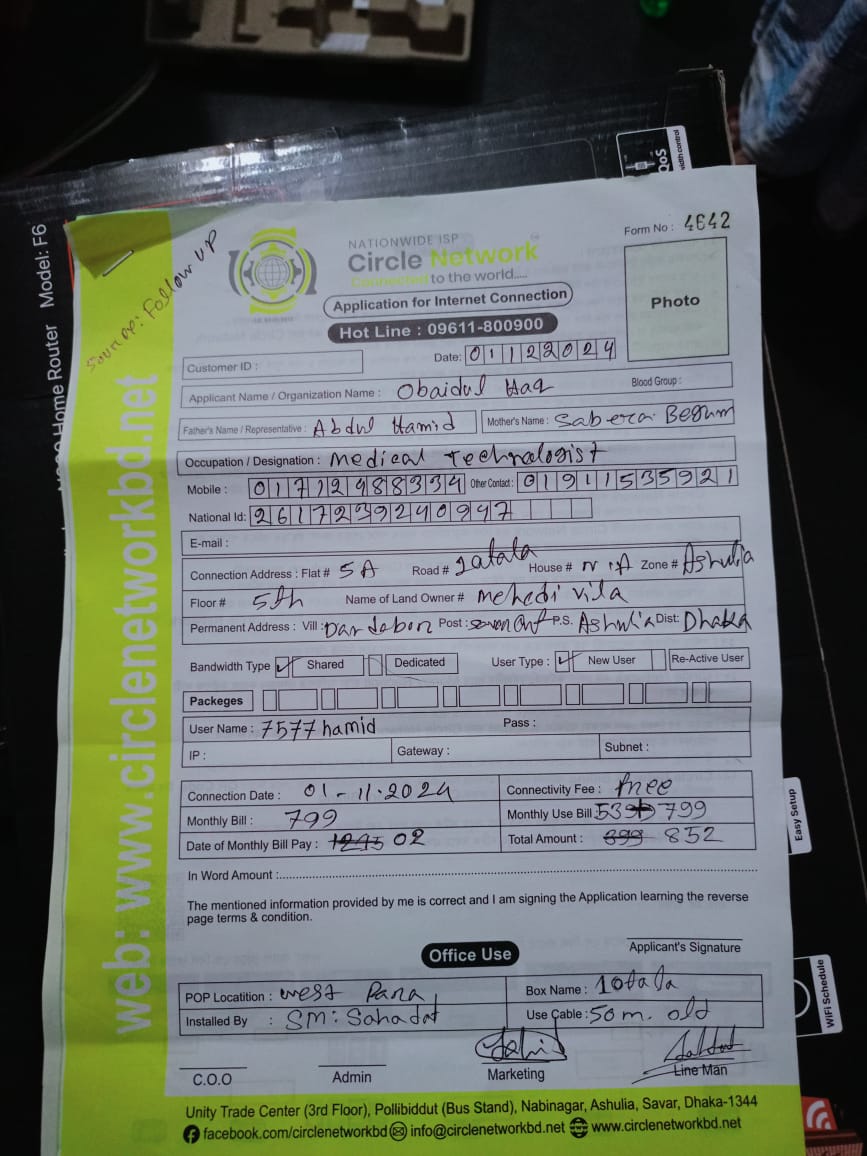 QoS
width control
Home Router Model: F6
Source: Follow UP
NATIONWIDE ISP
Circle Network
Connected to the world.....
Form No : 4642
Application for Internet Connection
Photo
Hot Line : 09611-800900
Customer ID :
Date: 01122024
Applicant Name / Organization Name : Obaidul Haq Blood Group :
Father's Name / Representative : Abdul Hamid Mother's Name : Sabera Begum
Occupation / Designation : Medical Technologist
Mobile : 01712988334 Other Contact : 01911535921
National Id: 2617239240947
E-mail :
Connection Address : Flat # 5A Road # House # N A Zone # Ashulia
Floor # 5th Name of Land Owner # Mehedi vila
Permanent Address : Vill : Post : P.S. Ashulia Dist: Dhaka
Bandwidth Type ✓ Shared Dedicated User Type : ✓ New User Re-Active User
Packeges
User Name : 7577hamid Pass :
IP : Gateway : Subnet :
Connection Date : 01-11.2024 Connectivity Fee : free
Monthly Bill : 799 Monthly Use Bill 799
Date of Monthly Bill Pay : 02 Total Amount : 899 852
In Word Amount :
The mentioned information provided by me is correct and I am signing the Application learning the reverse
page terms & condition.
Applicant's Signature
Office Use
POP Locatition : West Para Box Name : 10tala
Installed By : SM: Sahadat Use Cable : 50 m. old
C.O.O Admin Marketing Line Man
Unity Trade Center (3rd Floor), Pollibiddut (Bus Stand), Nabinagar, Ashulia, Savar, Dhaka-1344
facebook.com/circlenetworkbd info@circlenetworkbd.net www.circlenetworkbd.net
web: www.circlenetworkbd.net
Easy Setup
WiFi Schedule